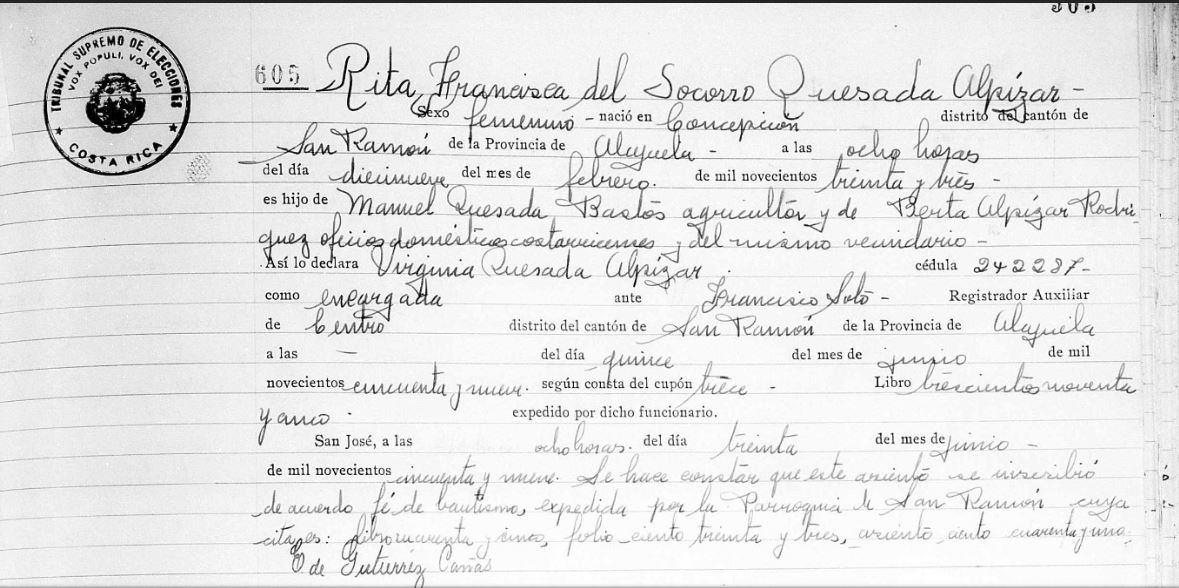 505
TRIBUNAL SUPREMO DE ELECCIONES
VOX POPULI, VOX DEI
COSTA RICA
605 Rita Francisca del Socorro Quesada Alpízar -
Sexo femenino - nació en Concepción distrito del cantón de
San Ramón de la Provincia de Alajuela - a las ocho horas
del día diecinueve del mes de febrero. de mil novecientos treinta y tres -
es hijo de Manuel Quesada Bastos agricultor y de Berta Alpízar Rodrí
guez oficios domésticos costarricenses y del mismo vecindario -
Así lo declara Virginia Quesada Alpízar. cédula 242287-
como encargada ante Francisco Soto - Registrador Auxiliar
de Centro distrito del cantón de San Ramón de la Provincia de Alajuela
a las — del día quince del mes de junio de mil
novecientos cincuenta y nueve. según consta del cupón trece - Libro trescientos noventa
y cinco. expedido por dicho funcionario.
San José, a las ocho horas. del día treinta del mes de junio -
de mil novecientos cincuenta y nueve. Se hace constar que este asiento se inscribió
de acuerdo fé de bautismo, expedida por la Parroquia de San Ramón cuya
cita es: libro cuarenta y cinco, folio ciento treinta y tres, asiento ciento cuarenta y uno.
O de Gutiérrez Cañas